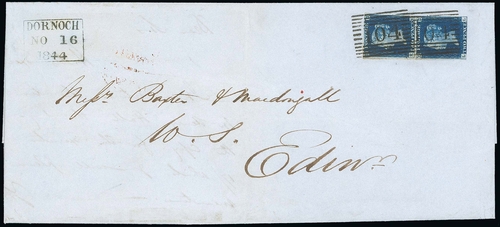 DORNOCH
NO 16
1844
Messrs Baxter & Macdougall
W. S.
Edinr